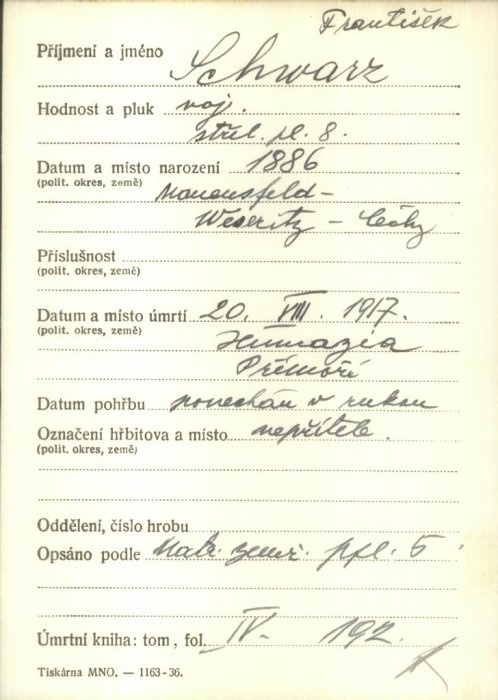 František
Příjmení a jméno Schwarz
Hodnost a pluk voj.
střel. pl. 8.
Datum a místo narození 1886
(polit. okres, země)
Weseritz - Čechy
Příslušnost
(polit. okres, země)
Datum a místo úmrtí 20. VIII. 1917.
(polit. okres, země)
Přímoří
Datum pohřbu ponechán v rukou
Označení hřbitova a místo nepřítele.
(polit. okres, země)
Oddělení, číslo hrobu
Opsáno podle Matr. zemř. 5
Úmrtní kniha: tom, fol. IV- 192.
Tiskárna MNO. — 1163-36.